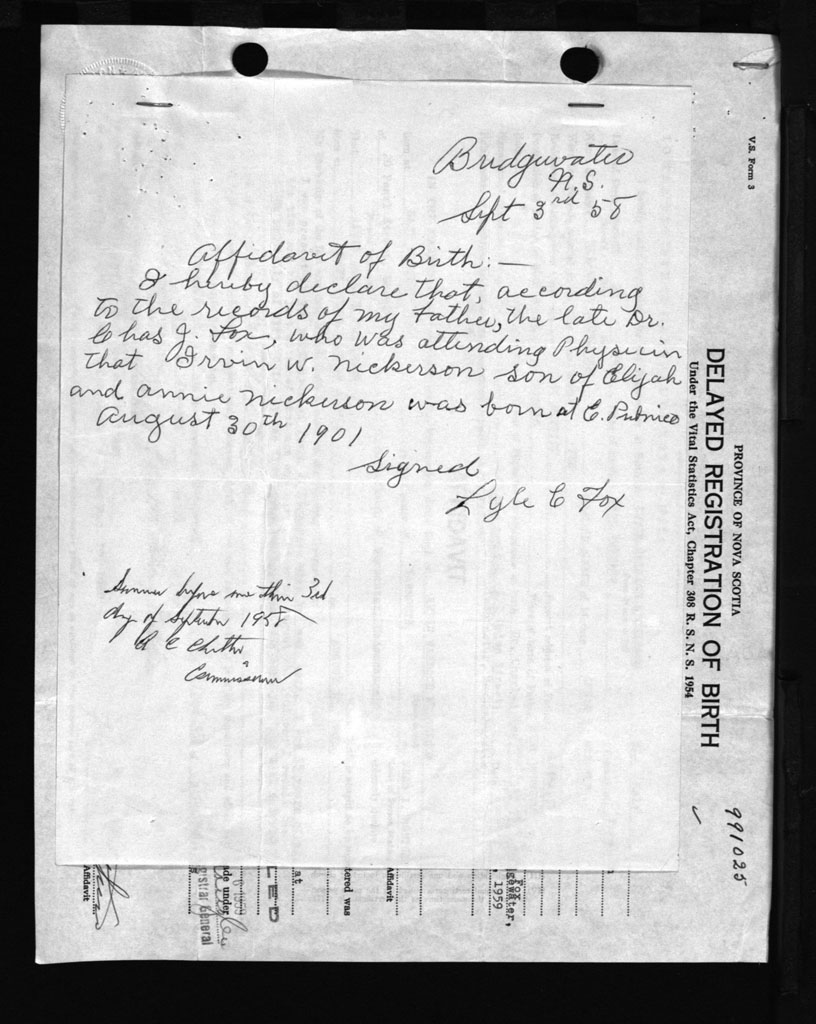 Bridgewater
N.S.
Sept 3rd 58
Affidavit of Birth:—
I hereby declare that, according
to the records of my Father, the late Dr.
Chas J. Fox, who was attending Physician
that Irvin W. Nickerson son of Elijah
and Annie Nickerson was born at E. Pubnico
August 30th 1901
Signed
Lyle C Fox
before me this 3rd
day of 1958
Commissioner
V.S. Form 3
PROVINCE OF NOVA SCOTIA
DELAYED REGISTRATION OF BIRTH
Under the Vital Statistics Act, Chapter 308 R. S. N. S. 1954
991025
Fox
gewater,
1959
Affidavit
tered was
at
LED
ade under
istrar General
Affidavit